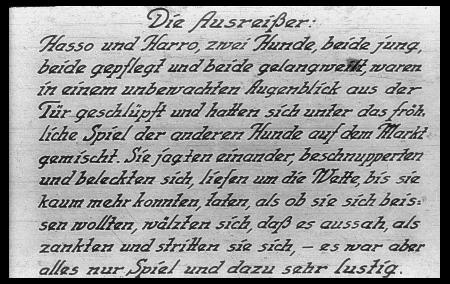 Die Ausreißer:
Hasso und Harro, zwei Hunde, beide jung,
beide gepflegt und beide gelangweilt, waren
in einem unbewachten Augenblick aus der
Tür geschlüpft und hatten sich unter das fröh-
liche Spiel der anderen Hunde auf dem Markt
gemischt. Sie jagten einander, beschnupperten
und beleckten sich, liefen um die Wette, bis sie
kaum mehr konnten, taten, als ob sie sich beis-
sen wollten, wälzten sich, daß es aussah, als
zankten und stritten sie sich, – es war aber
alles nur Spiel und dazu sehr lustig.